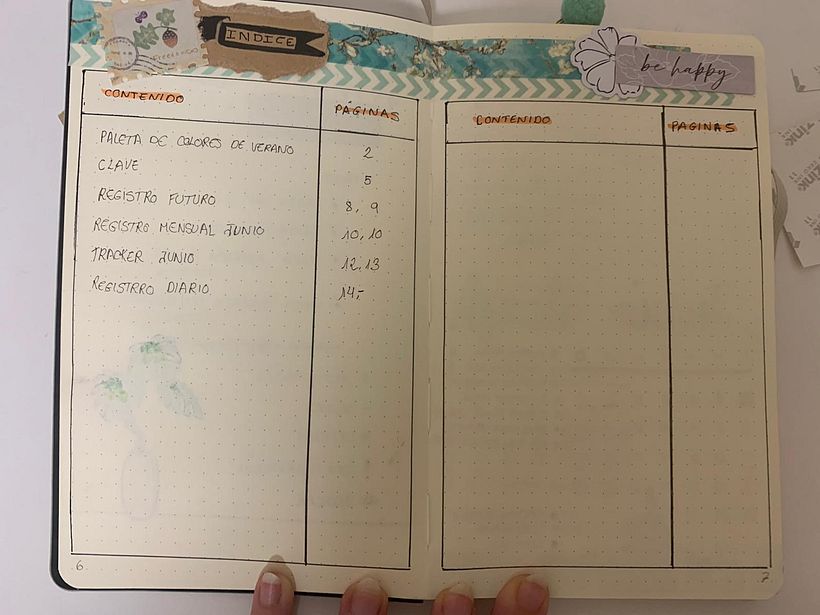 INDICE
be happy
CONTENIDO PÁGINAS
PALETA DE COLORES DE VERANO 2
CLAVE 5
REGISTRO FUTURO 8, 9
REGISTRO MENSUAL JUNIO 10,10
TRACKER JUNIO 12,13
REGISTRRO DIARIO 14,-
6
CONTENIDO PAGINAS
7